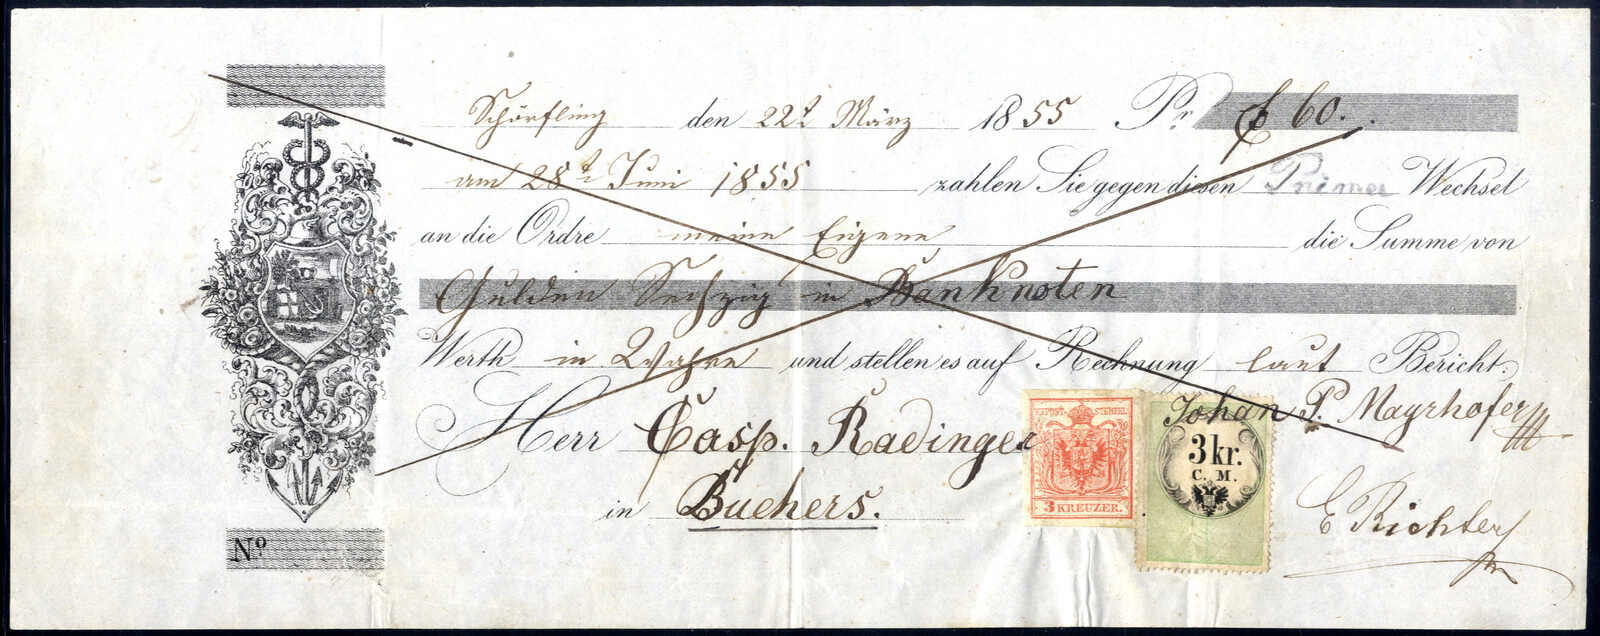 Schörfling den 22t März 1855 Pr f 60.
am 28t Juni 1855 zahlen Sie gegen diesen Prima Wechsel
an die Ordre meine Eigene die Summe von
Gulden Sechzig in Banknoten
Werth in Wahre und stellen es auf Rechnung laut Bericht.
Johan P. Mayrhofer
Herr Casp. Radinger
in Buchers.
E Richter
K.K.POST-STEMPEL
3 KREUZER.
3 kr.
C. M.
No